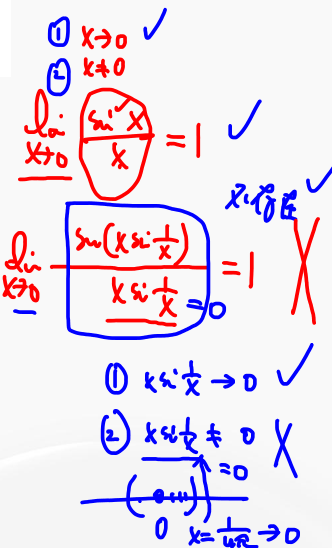 ① x→0 ✓
② x≠0
lim x→0 sin x / x = 1 ✓
不存在 ✓
lim x→0 sin(x sin 1/x) / x sin 1/x = 1 ✗
= 0
① x sin 1/x → 0 ✓
② x sin 1/x ≠ 0 ✗
= 0
0 x = 1/nπ → 0